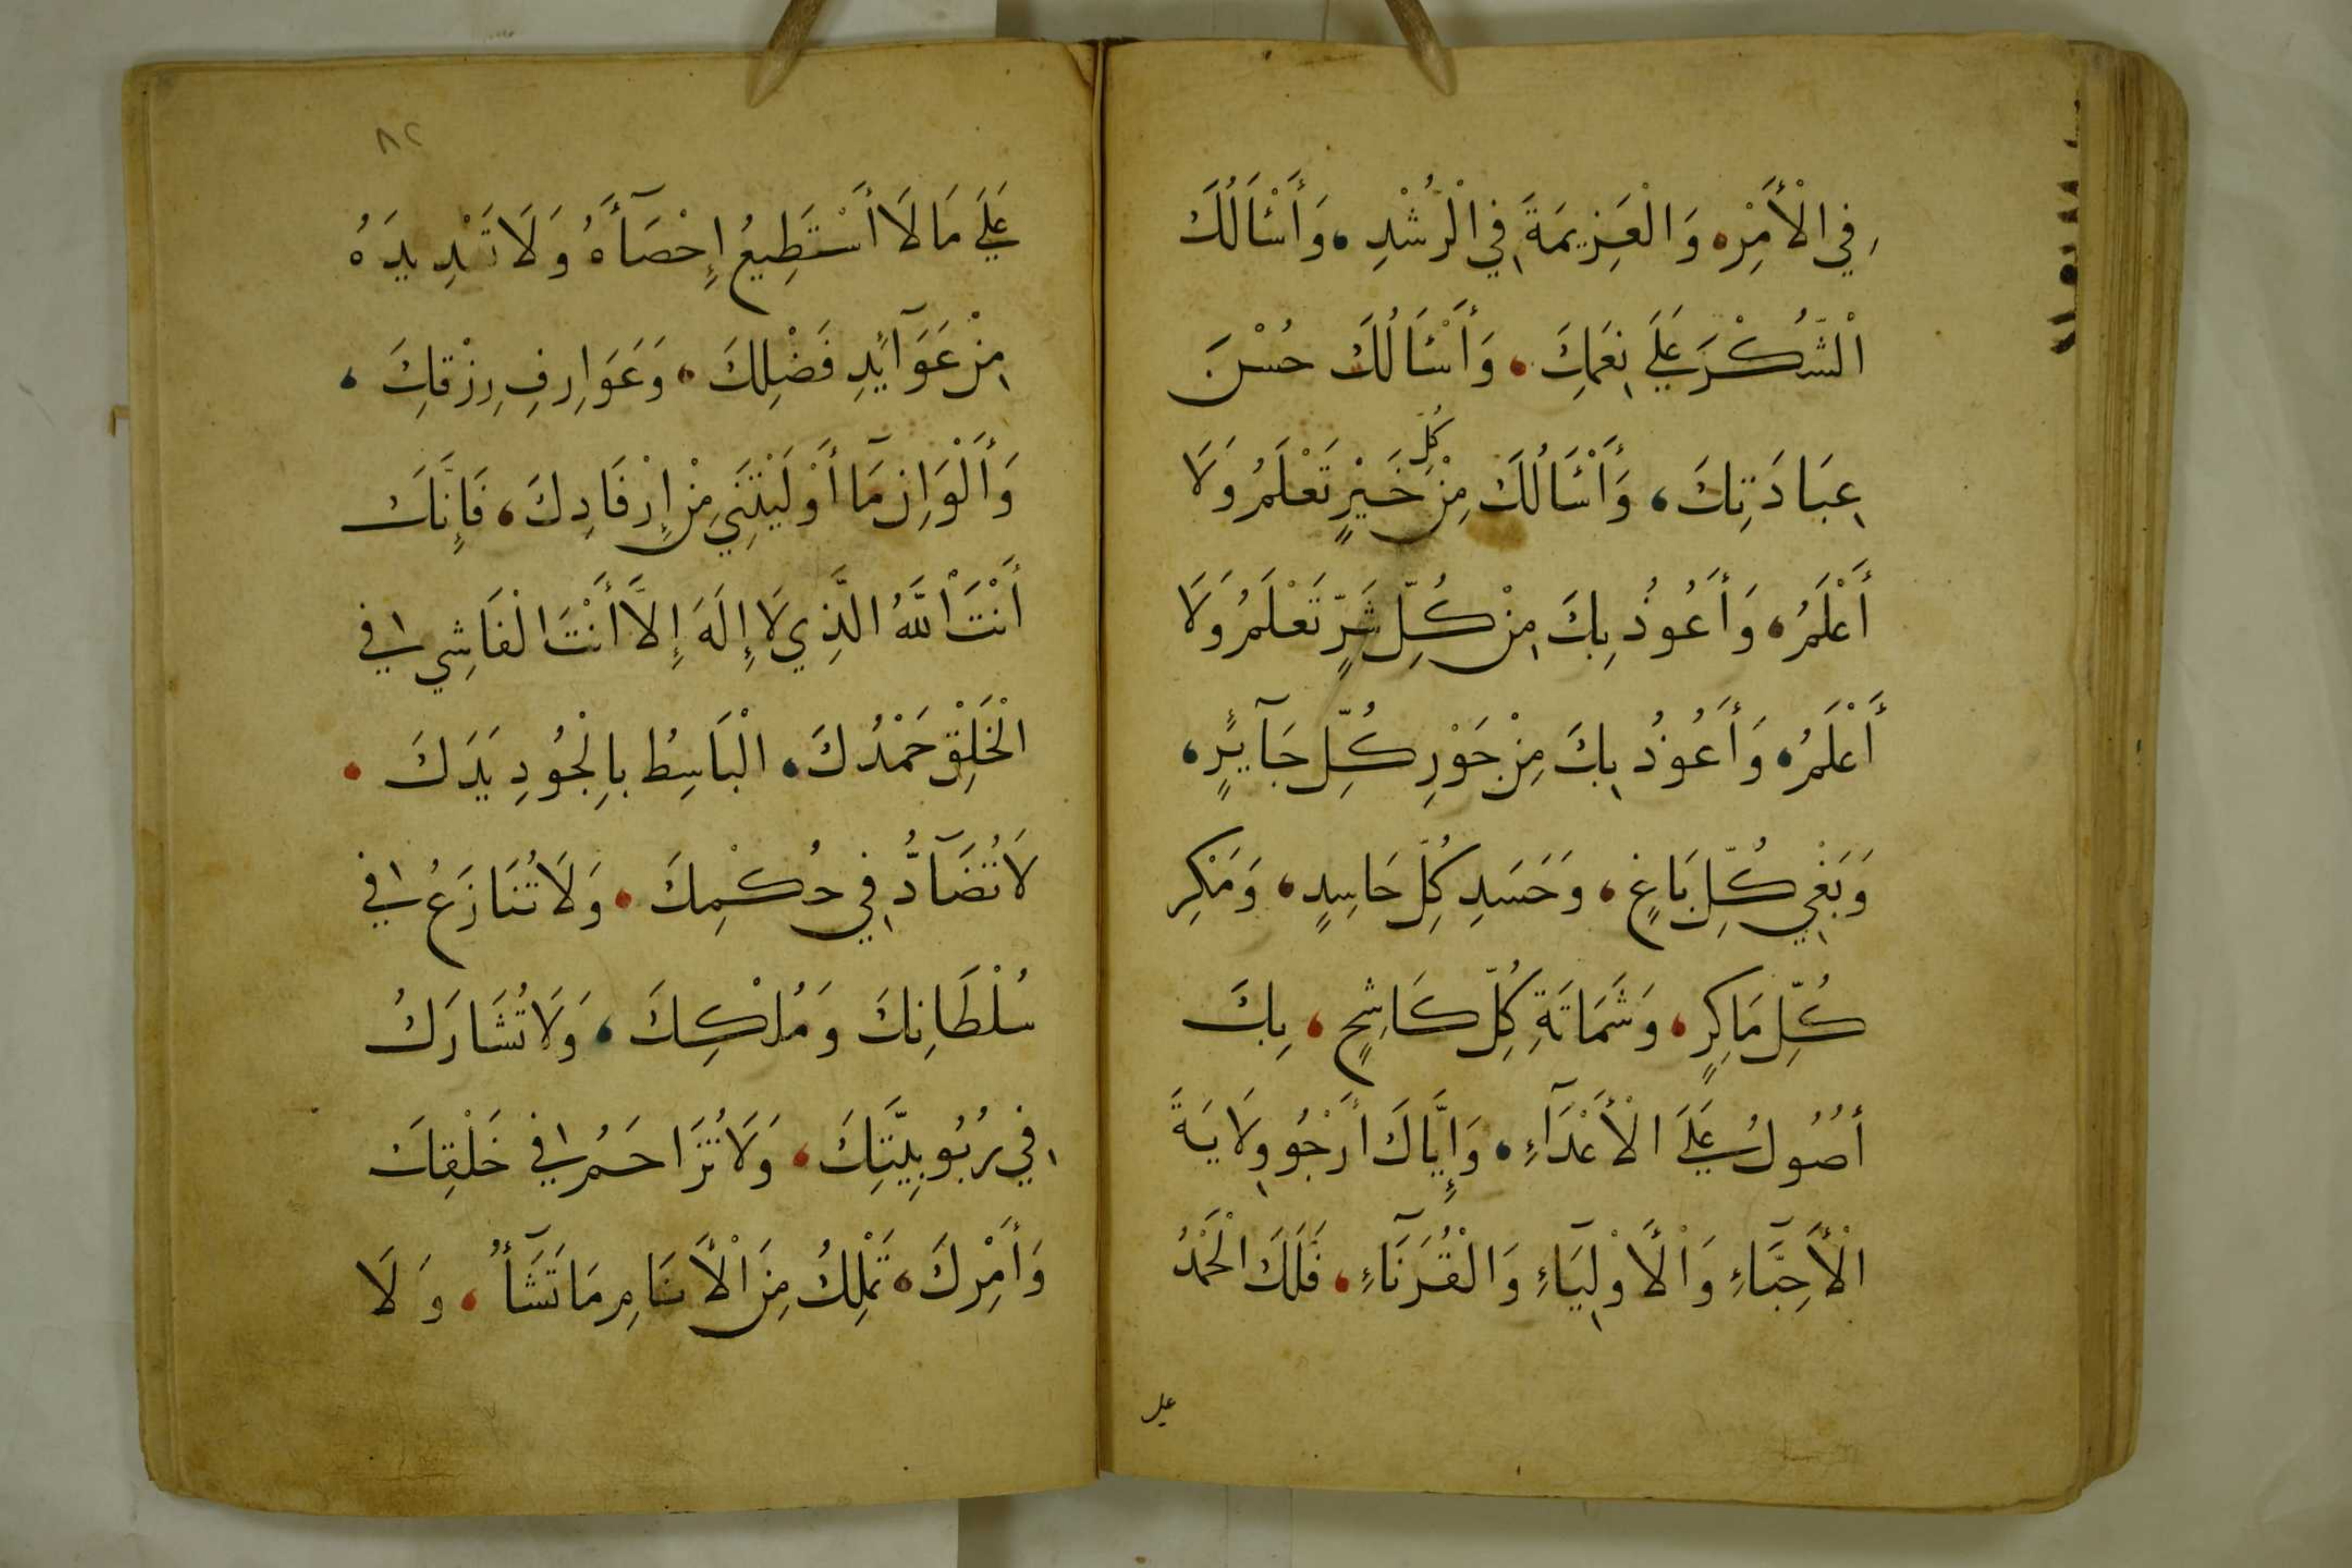 فِي الْأَمْرِ، وَالْعَزِيمَةَ فِي الْرُّشْدِ، وَأَسْئَالُكَ
الْشُّكْرَ عَلَى نِعَمِكَ، وَأَسْئَالُكَ حُسْنَ
عِبَادَتِكَ، وَأَسْئَالُكَ مِنْ كُلِّ خَيْرٍ تَعْلَمُ وَلَا
أَعْلَمُ، وَأَعُوذُ بِكَ مِنْ كُلِّ شَرٍّ تَعْلَمُ وَلَا
أَعْلَمُ، وَأَعُوذُ بِكَ مِنْ جَوْرِ كُلِّ جَآئِرٍ،
وَبَغْيِ كُلِّ بَاغٍ، وَحَسَدِ كُلِّ حَاسِدٍ، وَمَكْرِ
كُلِّ مَاكِرٍ، وَشَمَاتَةِ كُلِّ كَاشِحٍ، بِكَ
أَصُولُ عَلَى الْأَعْدَآءِ، وَإِيَّاكَ أَرْجُو وِلَايَةَ
الْأَحِبَّآءِ وَالْأَوْلِيَآءِ وَالْقُرَنَآءِ، فَلَكَ الْحَمْدُ
علي
٨٢
عَلَى مَا لَا أَسْتَطِيعُ إِحْصَآأَهُ وَلَا تَعْدِيدَهُ
مِنْ عَوَآئِدِ فَضْلِكَ، وَعَوَارِفِ رِزْقِكَ،
وَأَلْوَانِ مَآ أَوْلَيْتَنِي مِنْ إِرْفَادِكَ، فَإِنَّكَ
أَنْتَ اللَّهُ الَّذِي لَا إِلَهَ إِلَّا أَنْتَ الْفَاشِي فِي
الْخَلْقِ حَمْدُكَ، الْبَاسِطُ بِالْجُودِ يَدَكَ،
لَا تُضَآدُّ فِي حُكْمِكَ، وَلَا تُنَازَعُ فِي
سُلْطَانِكَ وَمُلْكِكَ، وَلَا تُشَارَكُ
فِي رُبُوبِيَّتِكَ، وَلَا تُزَاحَمُ فِي خَلْقِكَ
وَأَمْرِكَ، تَمْلِكُ مِنَ الْأَنَامِ مَا تَشَآأُ، وَلَا